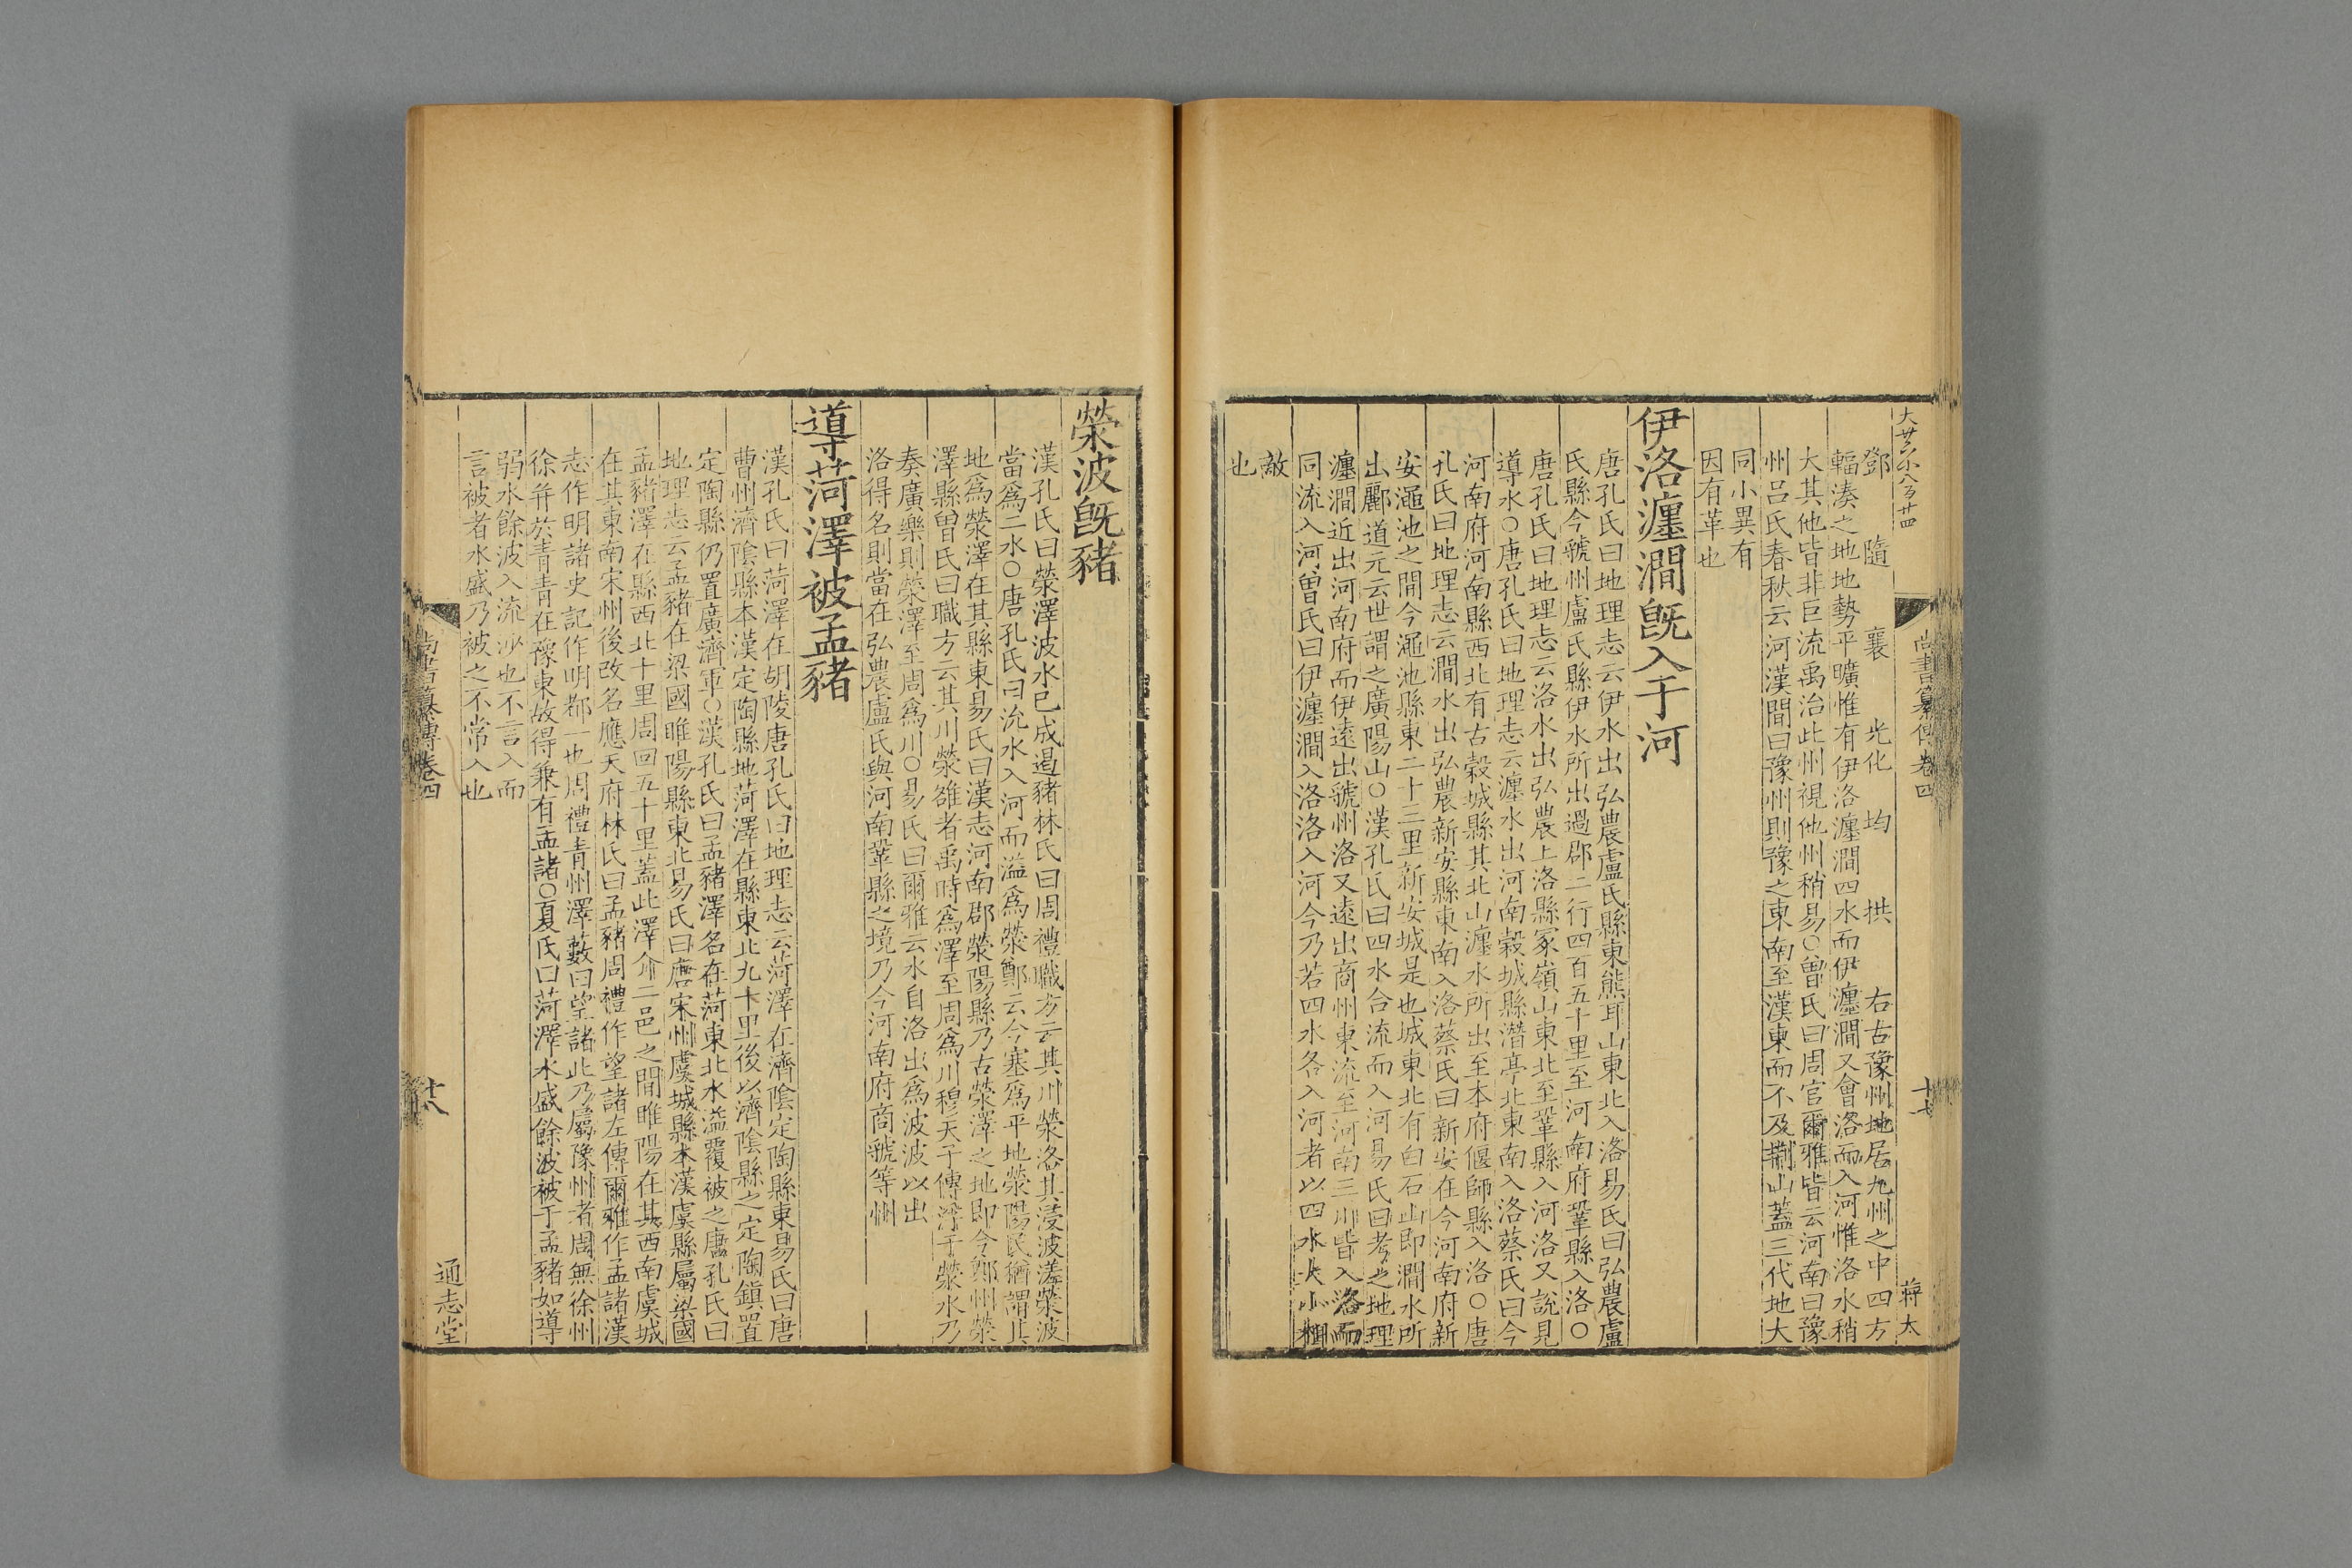 大廿六小八百廿四
尚書纂傳卷四
十七
蔣太
鄧　隨　襄　光化　均　拱　右古豫州地居九州之中四方
輻湊之地地勢平曠惟有伊洛瀍澗四水而伊瀍澗又會洛而入河惟洛水稍
大其他皆非巨流禹治此州視他州稍易○曾氏曰周官爾雅皆云河南曰豫
州呂氏春秋云河漢間曰豫州則豫之東南至漢東而不及荆山蓋三代地大
同小異有
因有革也
伊洛瀍澗旣入于河
唐孔氏曰地理志云伊水出弘農盧氏縣東熊耳山東北入洛易氏曰弘農盧
氏縣今虢州盧氏縣伊水所出過郡二行四百五十里至河南府鞏縣入洛○
唐孔氏曰地理志云洛水出弘農上洛縣冢嶺山東北至鞏縣入河洛又說見
導水○唐孔氏曰地理志云瀍水出河南穀城縣潛亭北東南入洛蔡氏曰今
河南府河南縣西北有古穀城縣其北山瀍水所出至本府偃師縣入洛○唐
孔氏曰地理志云澗水出弘農新安縣東南入洛蔡氏曰新安在今河南府新
安澠池之間今澠池縣東二十三里新安城是也城東北有白石山即澗水所
出酈道元云世謂之廣陽山○漢孔氏曰四水合流而入河易氏曰考之地理
瀍澗近出河南府而伊遠出虢州洛又遠出商州東流至河南三川皆入洛而
同流入河曾氏曰伊瀍澗入洛洛入河今乃若四水各入河者以四水大小相
敵
也
滎波旣豬
漢孔氏曰滎澤波水已成遏豬林氏曰周禮職方云其川滎洛其浸波溠滎波
當爲二水○唐孔氏曰沇水入河而溢爲滎鄭云今塞爲平地滎陽民猶謂其
地爲滎澤在其縣東易氏曰漢志河南郡滎陽縣乃古滎澤之地即今鄭州滎
澤縣曾氏曰職方云其川滎雒者禹時爲澤至周爲川穆天子傳浮于滎水乃
奏廣樂則滎澤至周爲川○易氏曰爾雅云水自洛出爲波波以出
洛得名則當在弘農盧氏與河南鞏縣之境乃今河南府商虢等州
導菏澤被孟豬
漢孔氏曰菏澤在胡陵唐孔氏曰地理志云菏澤在濟陰定陶縣東易氏曰唐
曹州濟陰縣本漢定陶縣地菏澤在縣東北九十里後以濟陰縣之定陶鎭置
定陶縣仍置廣濟軍○漢孔氏曰孟豬澤名在菏東北水溢覆被之唐孔氏曰
地理志云孟豬在梁國睢陽縣東北易氏曰唐宋州虞城縣本漢虞縣屬梁國
孟豬澤在縣西北十里周回五十里蓋此澤介二邑之間睢陽在其西南虞城
在其東南宋州後改名應天府林氏曰孟豬周禮作望諸左傳爾雅作孟諸漢
志作明諸史記作明都一也周禮青州澤藪曰望諸此乃屬豫州者周無徐州
徐并於青青在豫東故得兼有孟諸○夏氏曰菏澤水盛餘波被于孟豬如導
弱水餘波入流沙也不言入而
言被者水盛乃被之不常入也
尚書纂傳卷四
十八
通志堂